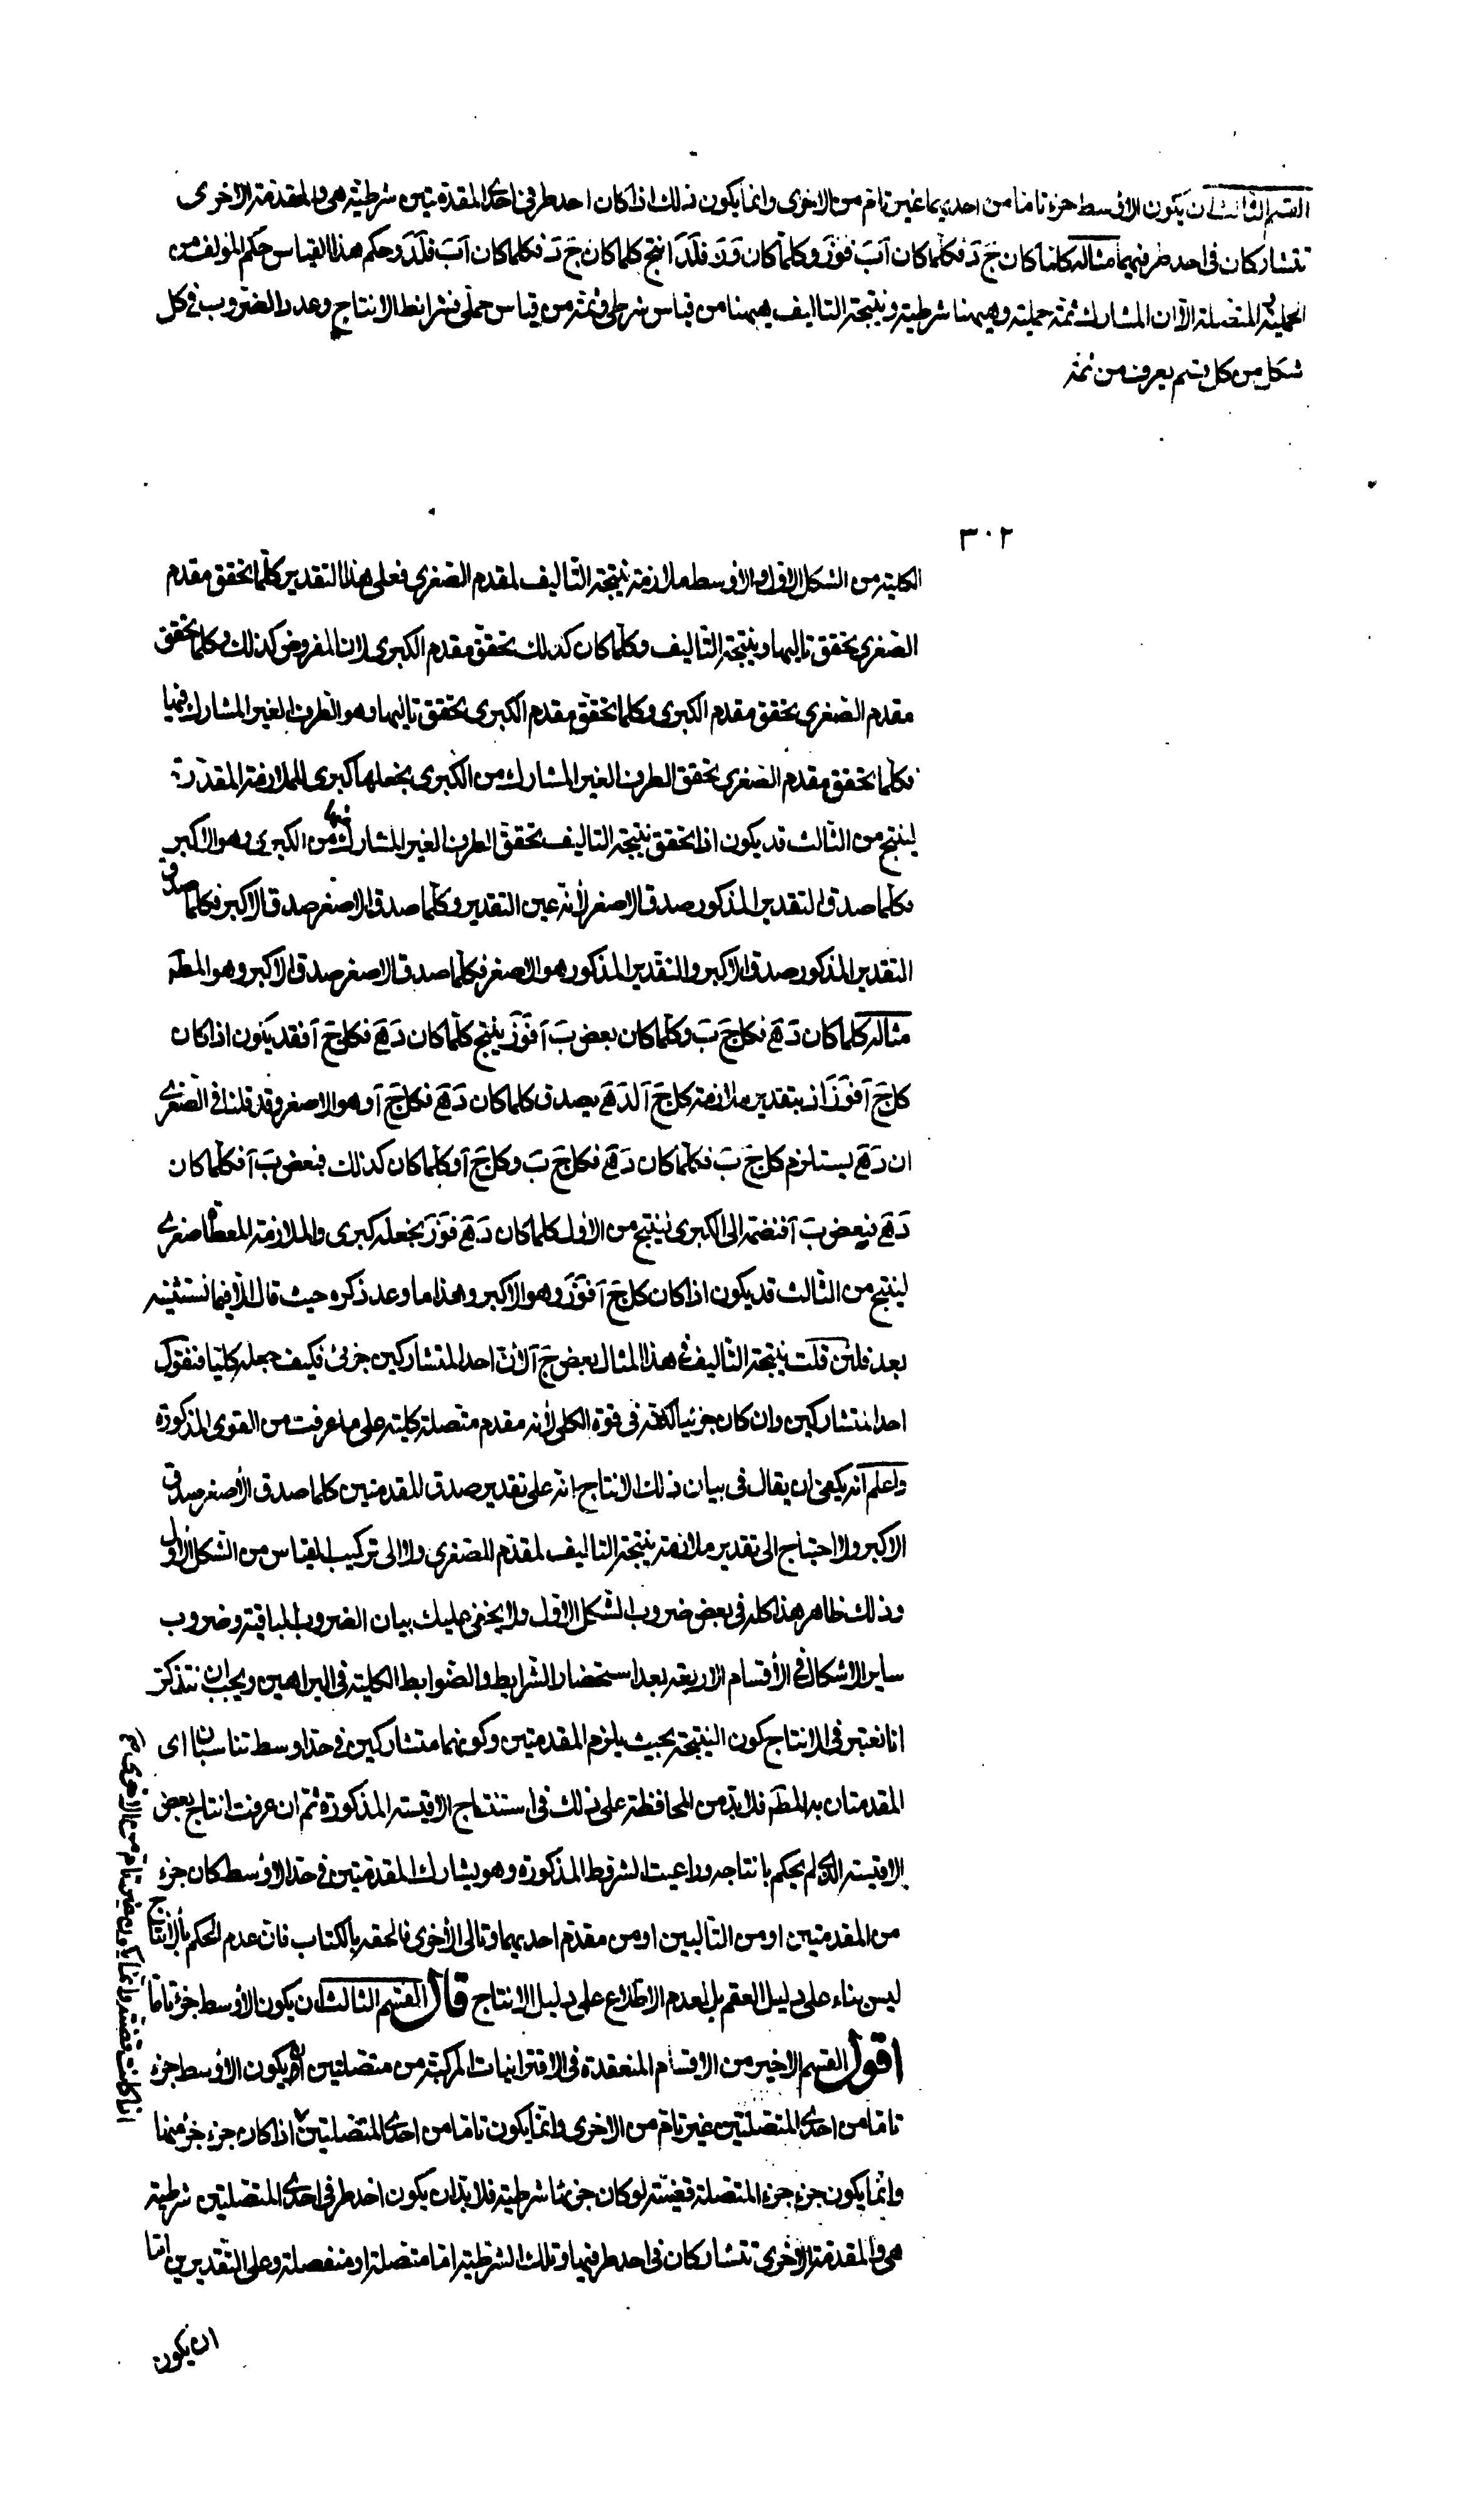 القسم الثالث ان يكون الاوسط جزء تاما من احديهما غير تام من الاخرى وانما يكون ذلك اذا كان احد طرفى احدى المقدمتين شرطية هى والمقدمة الاخرى
تتشاركان فى احد طرفيهما مثاله كلما كان جَ دَ فكلما كان اَبَ فوَزَ وكلما كان وَزَ فلَدَ انتج كلما كان جَ دَ فكلما كان اَبَ فلَدَ وحكم هذا القياس حكم المؤلف من
الحملية والمتصلة الا ان المشارك ثمة حملية وهيهنا شرطية ونتيجة التاليف هيهنا من قياس شرطى وثمة من قياس حملى فشرائط الانتاج وعدد الضروب فى كل
شكل من كل قسم يعرف من ثمة
٣٠٢
الكلية من الشكل الاول والاوسط ملازمة نتيجة التاليف لمقدم الصغرى فعلى هذا التقدير كلما تحقق مقدم
الصغرى تحقق تاليها ونتيجة التاليف وكلما كان كذلك تحقق مقدم الكبرى لان المفروض كذلك وكلما تحقق
مقدم الصغرى تحقق مقدم الكبرى وكلما تحقق مقدم الكبرى تحقق تاليها وهو الطرف الغير المشارك فيها
فكلما تحقق مقدم الصغرى تحقق الطرف الغير المشارك من الكبرى نجعلها كبرى للملازمة المقدرة
لينتج من الثالث قد يكون اذا تحقق نتيجة التاليف تحقق الطرف الغير المشارك من الكبرى وهو الاكبر
فكلما صدق التقدير المذكور صدق الاصغر لانه عين التقدير وكلما صدق الاصغر صدق الاكبر فكلما صدق
التقدير المذكور صدق الاكبر والتقدير المذكور هو الاصغر فكلما صدق الاصغر صدق الاكبر وهو المط
مثاله كلما كان دَ هَ فكل جَ بَ وكلما كان بعض بَ اَ فوَزَ ينتج كلما كان دَ هَ فكل جَ اَ فقد يكون اذا كان
كل جَ اَ فوَزَ اذ بتقدير ملازمة كل جَ اَ لدَ هَ يصدق كلما كان دَ هَ فكل جَ اَ وهو الاصغر وقد قلنا فى الصغرى
ان دَ هَ يستلزم كل جَ بَ فكلما كان دَ هَ فكل جَ بَ وكل جَ اَ وكلما كان كذلك فبعض بَ اَ فكلما كان
دَ هَ فبعض بَ اَ فنضمه الى الكبرى لينتج من الاول كلما كان دَ هَ فوَزَ نجعله كبرى والملازمة المعطاة صغرى
لينتج من الثالث قد يكون اذا كان كل جَ اَ فوَزَ وهو الاكبر وهذا ما وعد ذكره حيث قال الا فيما نستثنيه
بعد فلئن قلت نتيجة التاليف فى هذا المثال بعض جَ اَ لان احد المتشاركين جزئى فكيف جعله كليا فنقول
احد المتشاركين وان كان جزئيا لكنه فى قوة الكلى لانه مقدم متصلة كلية على ما عرفت من القوى المذكورة
واعلم انه يكفى ان يقال فى بيان ذلك الانتاج انه على تقدير صدق المقدمتين كلما صدق الأصغر صدق
الاكبر ولا احتياج الى تقدير ملازمة نتيجة التاليف لمقدم الصغرى ولا الى تركيب القياس من الشكل الاول
وذلك ظاهر هذا كله فى بعض ضروب الشكل الاول ولا يخفى عليك بيان الضروب الباقية وضروب
ساير الاشكال فى الأقسام الاربعة بعد استحضار الشرايط والضوابط الكلية فى البراهين ويجب ان تتذكر
انا نعتبر فى الانتاج كون النتيجة بحيث يلزم المقدمتين وكونهما متشاركين فى حد اوسط تناسبان اى
المقدمتان به المط فلا بد من المحافظة على ذلك فى استنتاج الاقيسة المذكورة ثم ان عرفت انتاج بعض
الاقيسة الذى لم يحكم بانتاجه وراعيت الشروط المذكورة وهو يشارك المقدمتين فى حد الاوسط كان جزء
من المقدمتين او من التاليين او من مقدم احديهما وتالى الأخرى فالحقه بالكتاب فان عدم الحكم بالانتاج
ليس بناء على دليل العقم بل لعدم الاطلاع على دليل الانتاج قال القسم الثالث ان يكون الأوسط جزء تاما
اقول القسم الاخير من الاقسام المنعقدة فى الاقترانيات المركبة من متصلتين ان يكون الاوسط جزء
تاما من احدى المتصلتين غير تام من الاخرى وانما يكون تاما من احدى المتصلتين اذا كان جزء جزء منها
وانما يكون جزء جزء المتصلة قضية لو كان جزئها شرطية فلا بد ان يكون احد طرفى احدى المتصلتين شرطية
هى والمقدمة الاخرى تتشاركان فى احد طرفيها وتلك الشرطية اما متصلة او منفصلة وعلى التقديرين اما
ان يكون